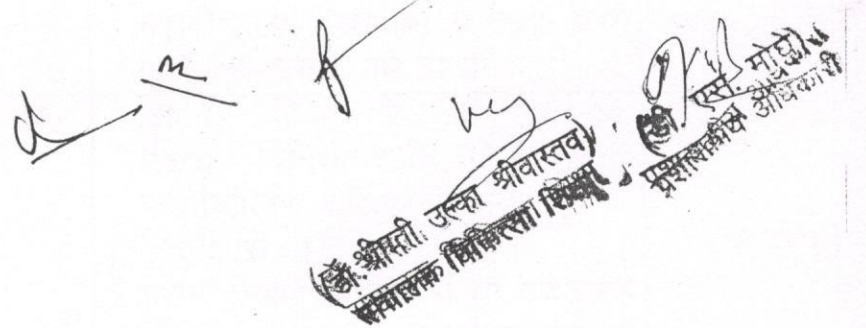 (डॉ. श्रीमती उल्का श्रीवास्तव)
संचालक चिकित्सा शिक्षा
(डी. एस. मोघे)
प्रशासकीय अधिकारी